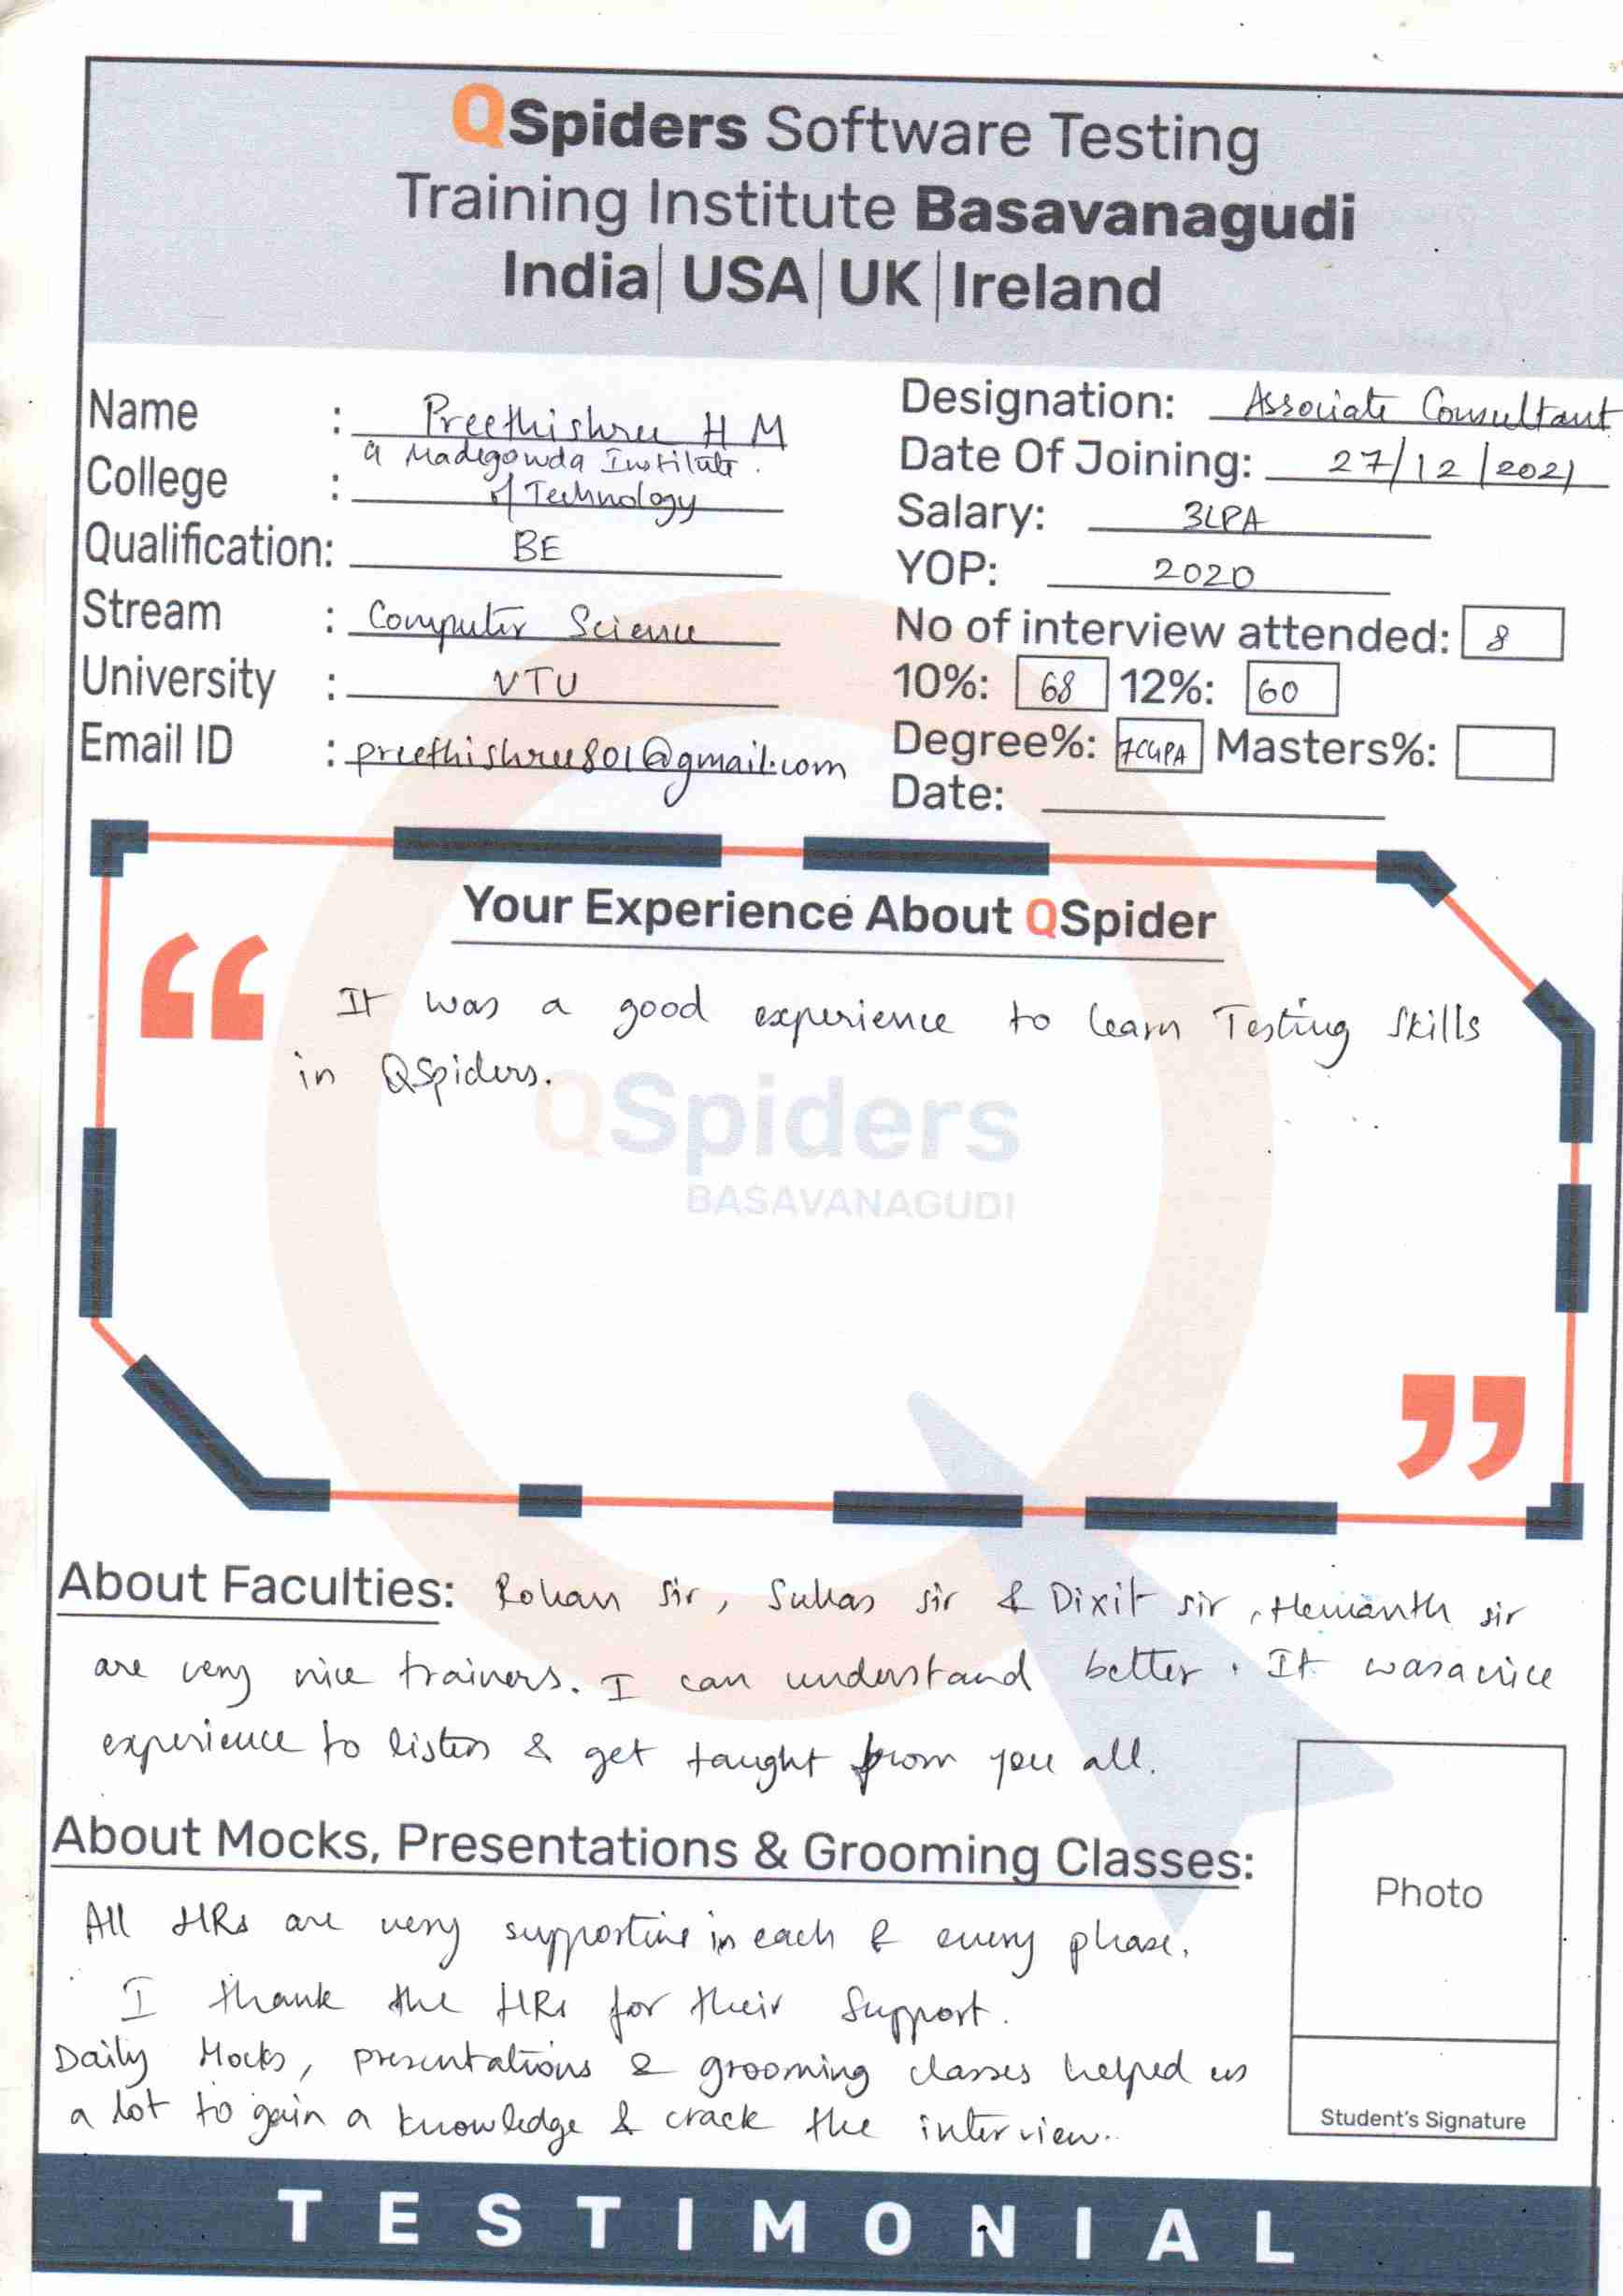 QSpiders Software Testing
Training Institute Basavanagudi
India| USA| UK |Ireland
Name : Preethishree H M
College : G Madegowda Institute
of Technology
Qualification: BE
Stream : Computer Science
University : VTU
Email ID : preethishree801@gmail.com
Designation: Associate Consultant
Date Of Joining: 27/12/2021
Salary: 3LPA
YOP: 2020
No of interview attended: 8
10%: 68 12%: 60
Degree%: 7CGPA Masters%:
Date:
Your Experience About QSpider
“
It was a good experience to learn Testing Skills
in QSpiders.
QSpiders
BASAVANAGUDI
”
About Faculties: Rohan Sir, Suhas sir & Dixit sir, Hemanth sir
are very nice trainers. I can understand better. It was a nice
experience to listen & get taught from you all.
About Mocks, Presentations & Grooming Classes:
All HRs are very supportive in each & every phase.
I thank the HRs for their Support.
Daily Mocks, presentations & grooming classes helped us
a lot to gain a knowledge & crack the interview.
Photo
Student's Signature
TESTIMONIAL